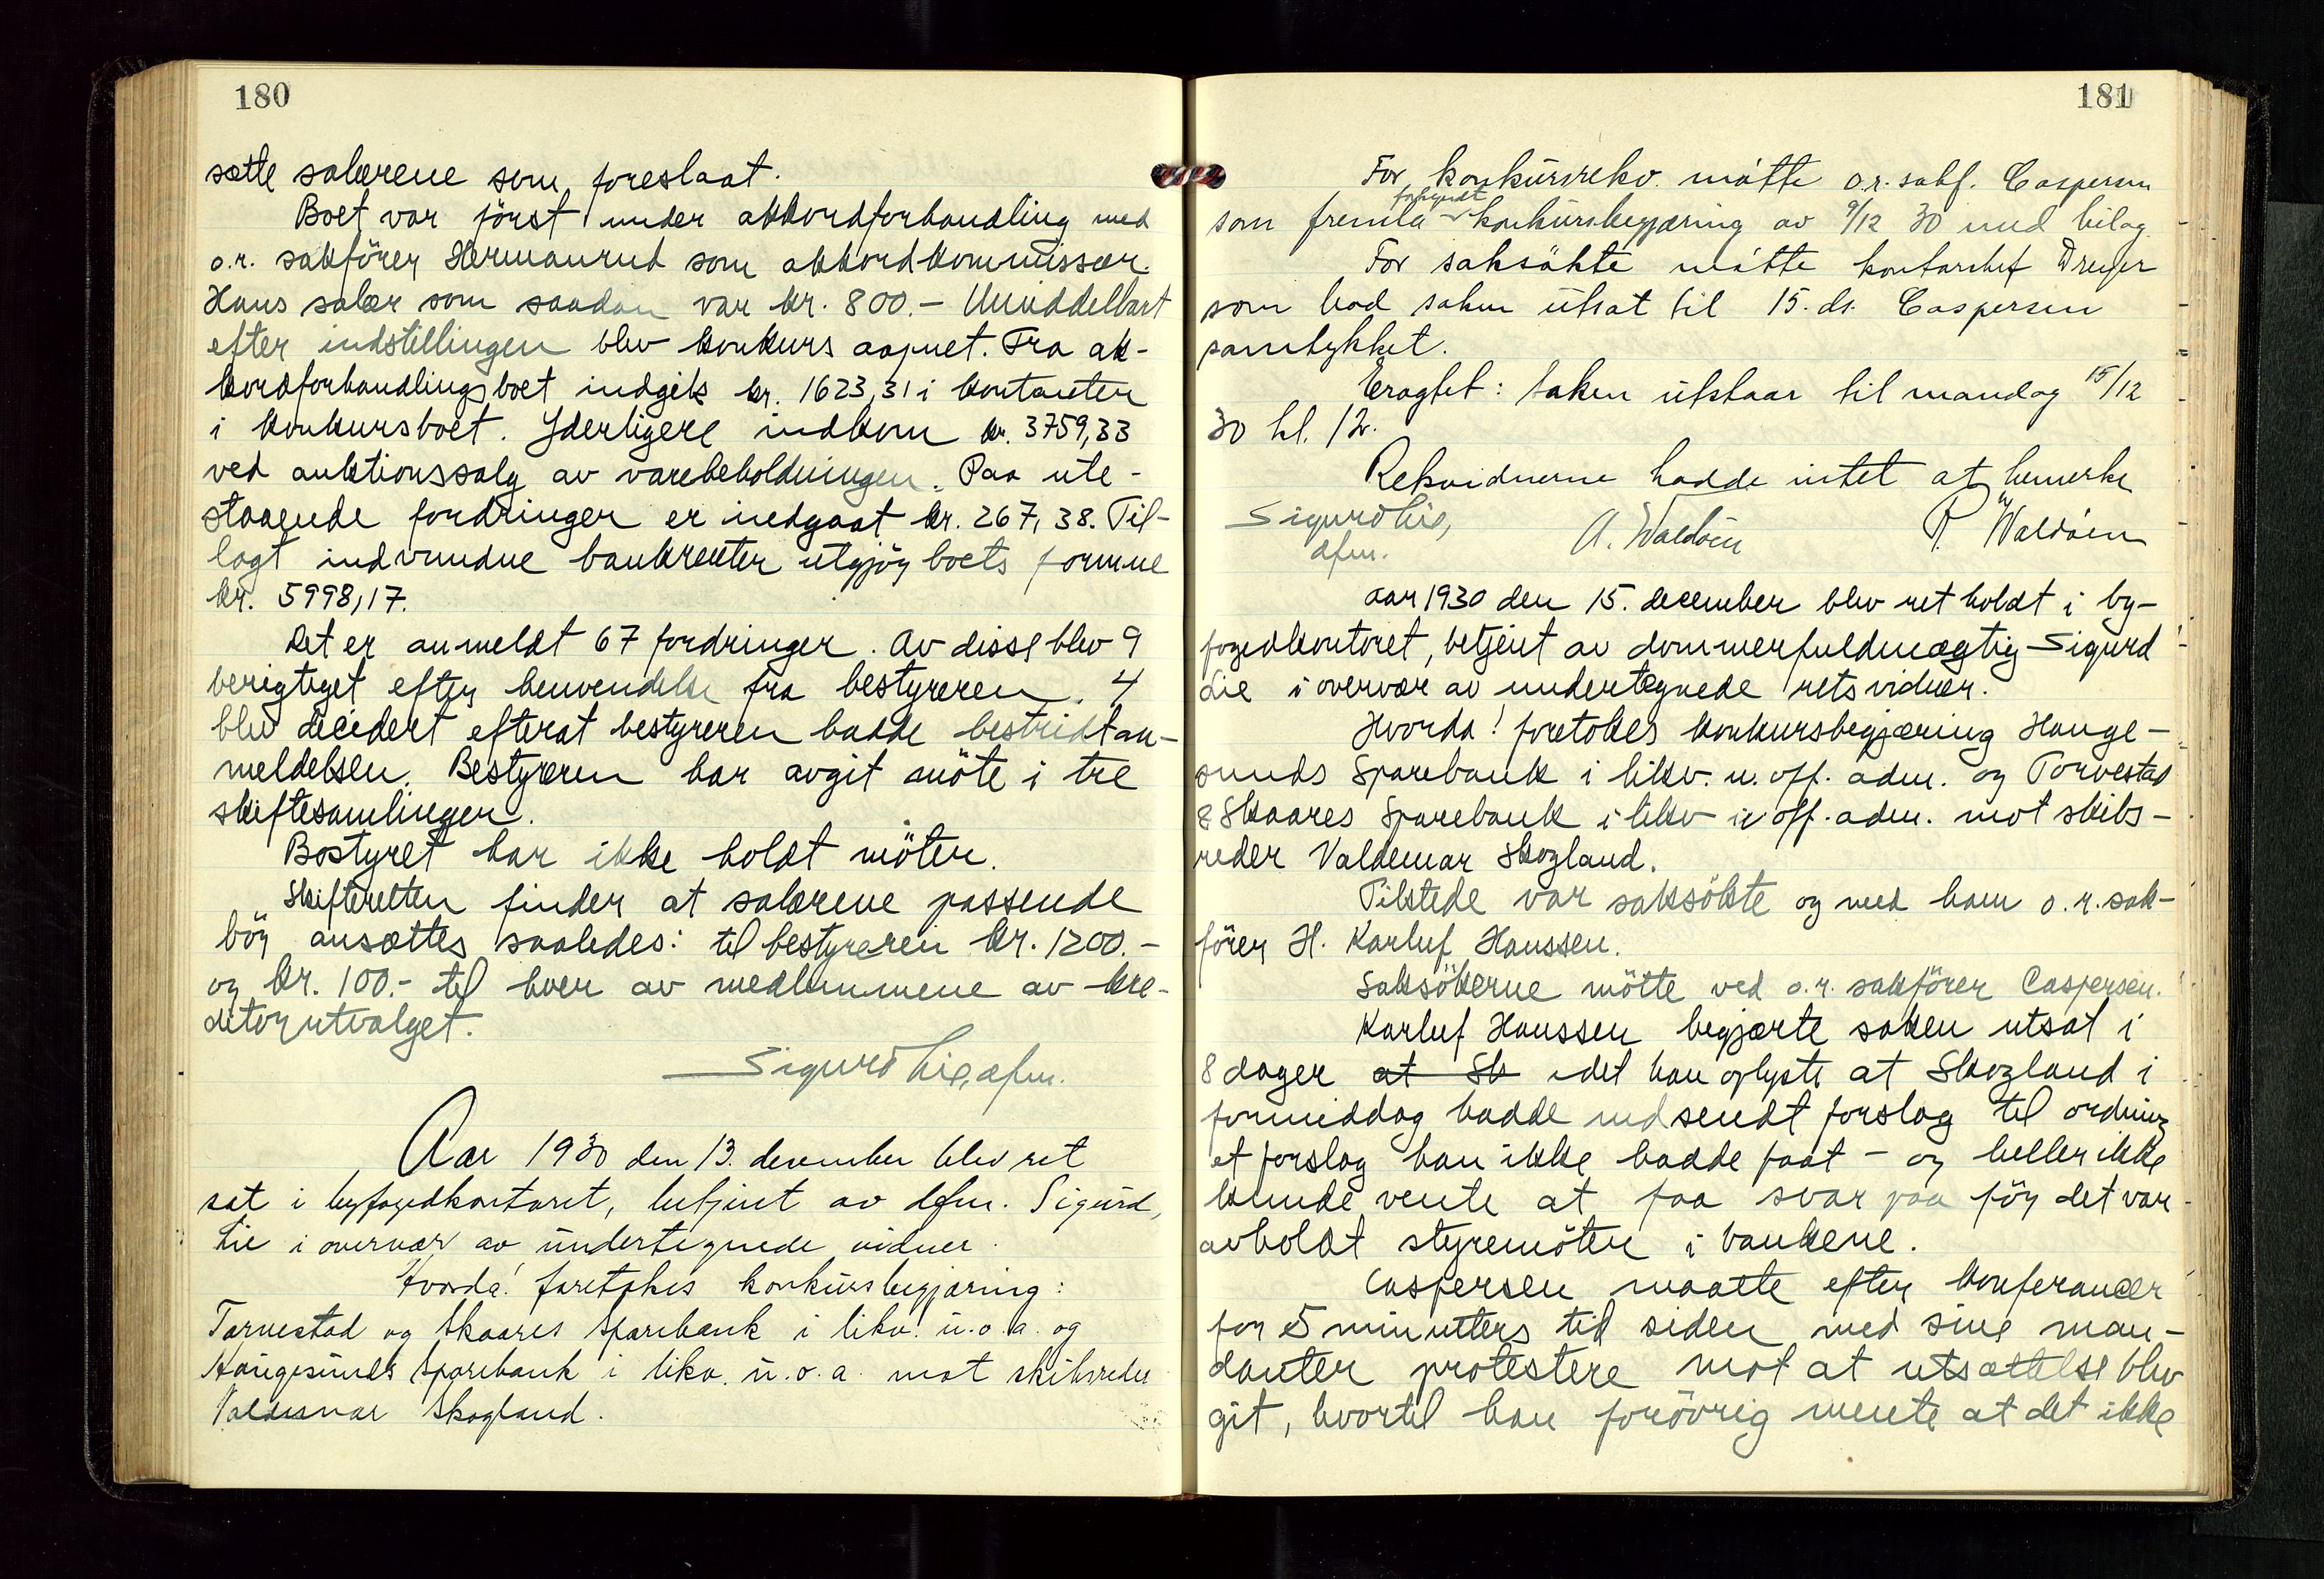 180
sætte salærene som foreslaat.
Boet var först under akkordforhandling med
o.r. sakförer Hermanrud som akkordkommissær.
Hans salær som saadan var kr. 800.- Umiddelbart
efter indstillingen blev konkurs aapnet. Fra ak-
kordforhandlingsboet indgik kr. 1623,31 i kontanter
i konkursboet. Yderligere indkom kr. 3759,33
ved auktionssalg av varebeholdningen. Paa ute-
staaende fordringer er indgaat kr. 267,38. Til-
lagt indvundne bankrenter utgjör boets formue
kr. 5998,17.
Det er anmeldt 67 fordringer. Av disse blev 9
berigtiget efter henvendelse fra bestyreren. 4
blev decidert efterat bestyreren hadde bestridt an-
meldelsen. Bestyreren har avgit möte i tre
skiftesamlinger.
Bostyret har ikke holdt möter.
Skifteretten finder at salærene passende
bör ansættes saaledes: til bestyreren kr. 1200.-
og kr. 100.- til hver av medlemmene av kre-
ditorutvalget.
Sigurd Lie, dfm.
Aar 1930 den 13. december blev ret
sat i byfogedkontoret, betjent av dfm. Sigurd
Lie i overvær av undertegnede vidner.
Hvorda! foretokes konkursbegjæring:
Torvestad og Skaares Sparebank i likv. u.o.a. og
Haugesunds Sparebank i likv. u.o.a. mot skibsreder
Valdemar Skogland.
181
For konkursrekv. mötte o.r.sakf. Caspersen
forkyndt
som fremla konkursbegjæring av 9/12 30 med bilag.
For saksökte mötte kontorchef Dreyer
som bad saken utsat til 15. ds. Caspersen
samtykket.
Eragtet: Saken utstaar til mandag 15/12
30 kl. 12.
Rekvidnerne hadde intet at bemerke
Sigurd Lie,
dfm.
A. Waldöen
R. Waldöen
Aar 1930 den 15. december blev ret holdt i by-
fogedkontoret, betjent av dommerfuldmægtig Sigurd
Lie i overvær av undertegnede retsvidner.
Hvorda! foretokes konkursbegjæring Hauge-
sunds Sparebank i likv. u. off. adm. og Torvestad
& Skaares Sparebank i likv u off. adm. mot skibs-
reder Valdemar Skogland.
Tilstede var saksökte og med ham o.r.sak-
förer H. Karluf Hanssen.
Saksökerne mötte ved o.r. sakförer Caspersen.
Karluf Hanssen begjærte saken utsat i
8 dager at Sk idet han oplyste at Skogland i
formiddag hadde indsendt forslag til ordning
et forslag han ikke hadde faat - og heller ikke
kunde vente at faa svar paa för det var
avholdt styremöter i bankene.
Caspersen maatte efter konferancer
for 5 minutters tid siden med sine man-
danter protestere mot at utsættelse blev
git, hvortil han forövrig mente at det ikke